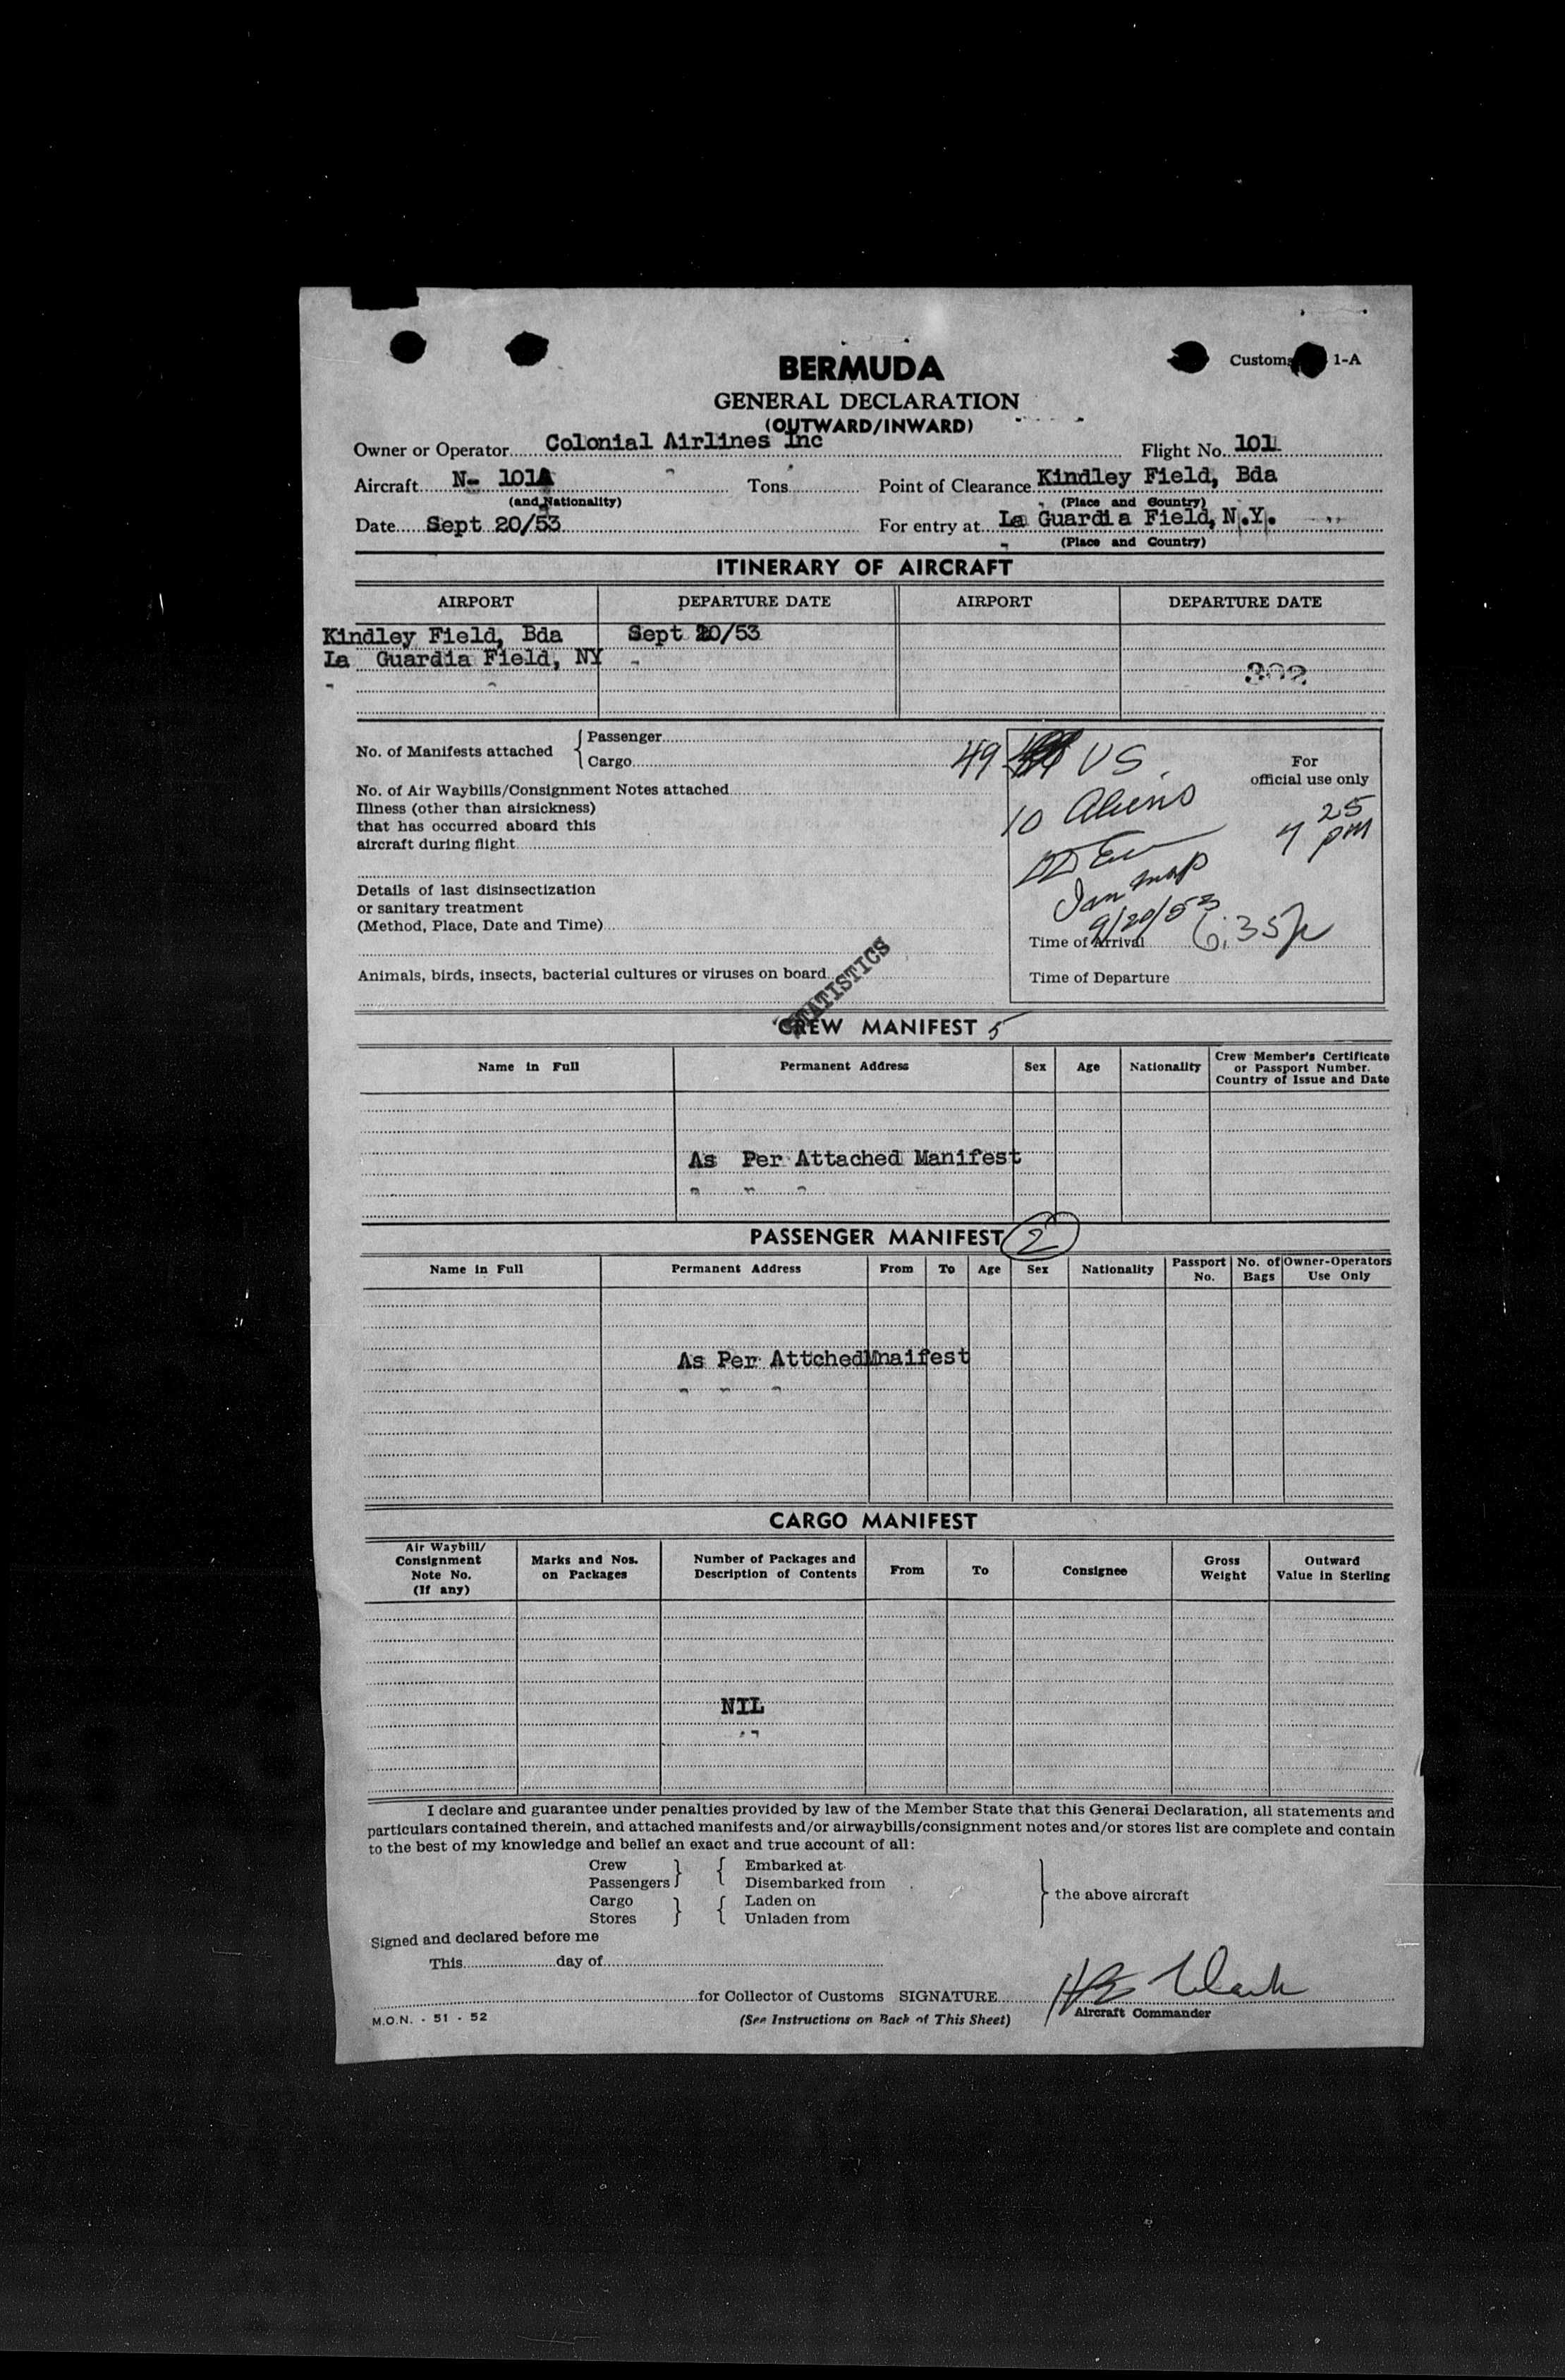 BERMUDA
Customs 1-A
GENERAL DECLARATION
(OUTWARD/INWARD)
Owner or Operator Colonial Airlines Inc Flight No. 101
Aircraft N- 101A Tons Point of Clearance Kindley Field, Bda
(and Nationality) (Place and Country)
Date Sept 20/53 For entry at La Guardia Field, N.Y.
(Place and Country)
ITINERARY OF AIRCRAFT
AIRPORT DEPARTURE DATE AIRPORT DEPARTURE DATE
Kindley Field, Bda Sept 20/53
La Guardia Field, NY
302
No. of Manifests attached { Passenger
Cargo
49 US
For
official use only
No. of Air Waybills/Consignment Notes attached
10 Aliens
Illness (other than airsickness)
that has occurred aboard this
aircraft during flight
7 25 pm
Details of last disinsectization
or sanitary treatment
(Method, Place, Date and Time)
9/20/53
Time of Arrival 6:35p
Animals, birds, insects, bacterial cultures or viruses on board
Time of Departure
STATISTICS
CREW MANIFEST 5
Name in Full Permanent Address Sex Age Nationality Crew Member's Certificate
or Passport Number.
Country of Issue and Date
As Per Attached Manifest
" " "
PASSENGER MANIFEST 2
Name in Full Permanent Address From To Age Sex Nationality Passport No. No. of Bags Owner-Operators Use Only
As Per Attched Mnaifest
" " "
CARGO MANIFEST
Air Waybill/ Consignment Note No. (If any) Marks and Nos. on Packages Number of Packages and Description of Contents From To Consignee Gross Weight Outward Value in Sterling
NIL
I declare and guarantee under penalties provided by law of the Member State that this General Declaration, all statements and
particulars contained therein, and attached manifests and/or airwaybills/consignment notes and/or stores list are complete and contain
to the best of my knowledge and belief an exact and true account of all:
Crew } { Embarked at
Passengers Disembarked from
Cargo } { Laden on
Stores Unladen from
} the above aircraft
Signed and declared before me
This day of
for Collector of Customs SIGNATURE H B Clark
Aircraft Commander
M.O.N. - 51 - 52
(See Instructions on Back of This Sheet)